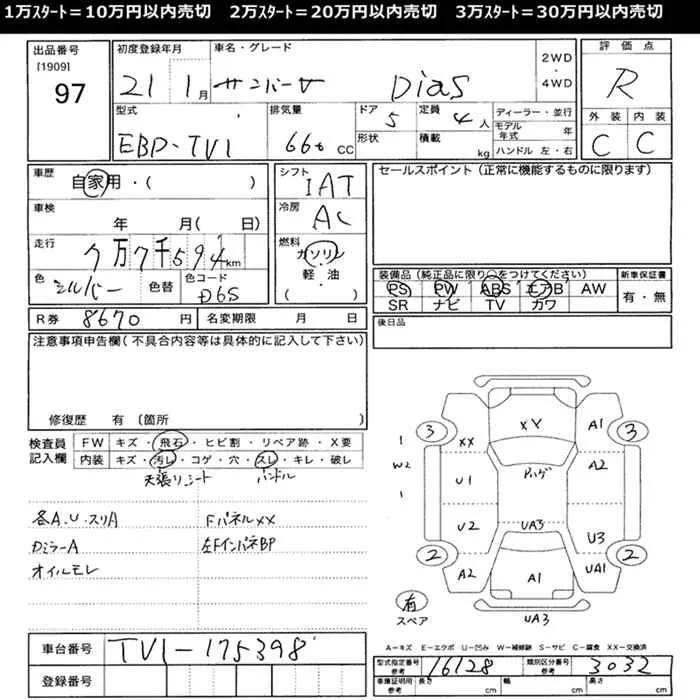 1万ｽﾀｰﾄ＝10万円以内売切 2万ｽﾀｰﾄ＝20万円以内売切 3万ｽﾀｰﾄ＝30万円以内売切
出品番号
[1909]
97
初度登録年月
21 1月
車名・グレード
サンバーV Dias
2WD
・
4WD
評価点
R
外装 内装
C C
型式
EBD-TV1
排気量
660 CC
ドア 5
形状
定員 4人
積載 kg
ディーラー・並行
モデル年式 年
ハンドル 左・右
車歴
自家用・( )
車検
年 月( 日)
走行
7万7千594km
色
シルバー
色替
色コード
D6S
シフト
IAT
冷房
AC
燃料
ガソリン
・
軽・油
( )
セールスポイント(正常に機能するものに限ります)
装備品(純正品に限り○をつけてください)
PS PW ABS エアB AW
SR ナビ TV カワ
新車保証書
有・無
R券 8670 円
名変期限 月 日
後日品
注意事項申告欄(不具合内容等は具体的に記入して下さい)
修復歴 有 [箇所 ]
検査員
記入欄
FW キズ・飛石・ヒビ割・リペア跡・X要
内装 キズ・汚レ・コゲ・穴・スレ・キレ・破レ
天張り シート ハンドル
各A.U.スリA
Fパネル××
Dミラー A
左FインパネBP
オイルモレ
3
××
XY
A1
3
1
W2
1
U1
ハゲ
A2
U2
UA3
U3
2
A2
A1
UA1
2
有
スペア
UA3
A－キズ E－エクボ U－凹み W－補修跡 S－サビ C－腐食 XX－交換済
車台番号
TV1-175398
登録番号
型式指定番号
参考
16128
類別区分番号
参考
3032
車庫証明用
参考
長さ cm 幅 cm 高さ cm